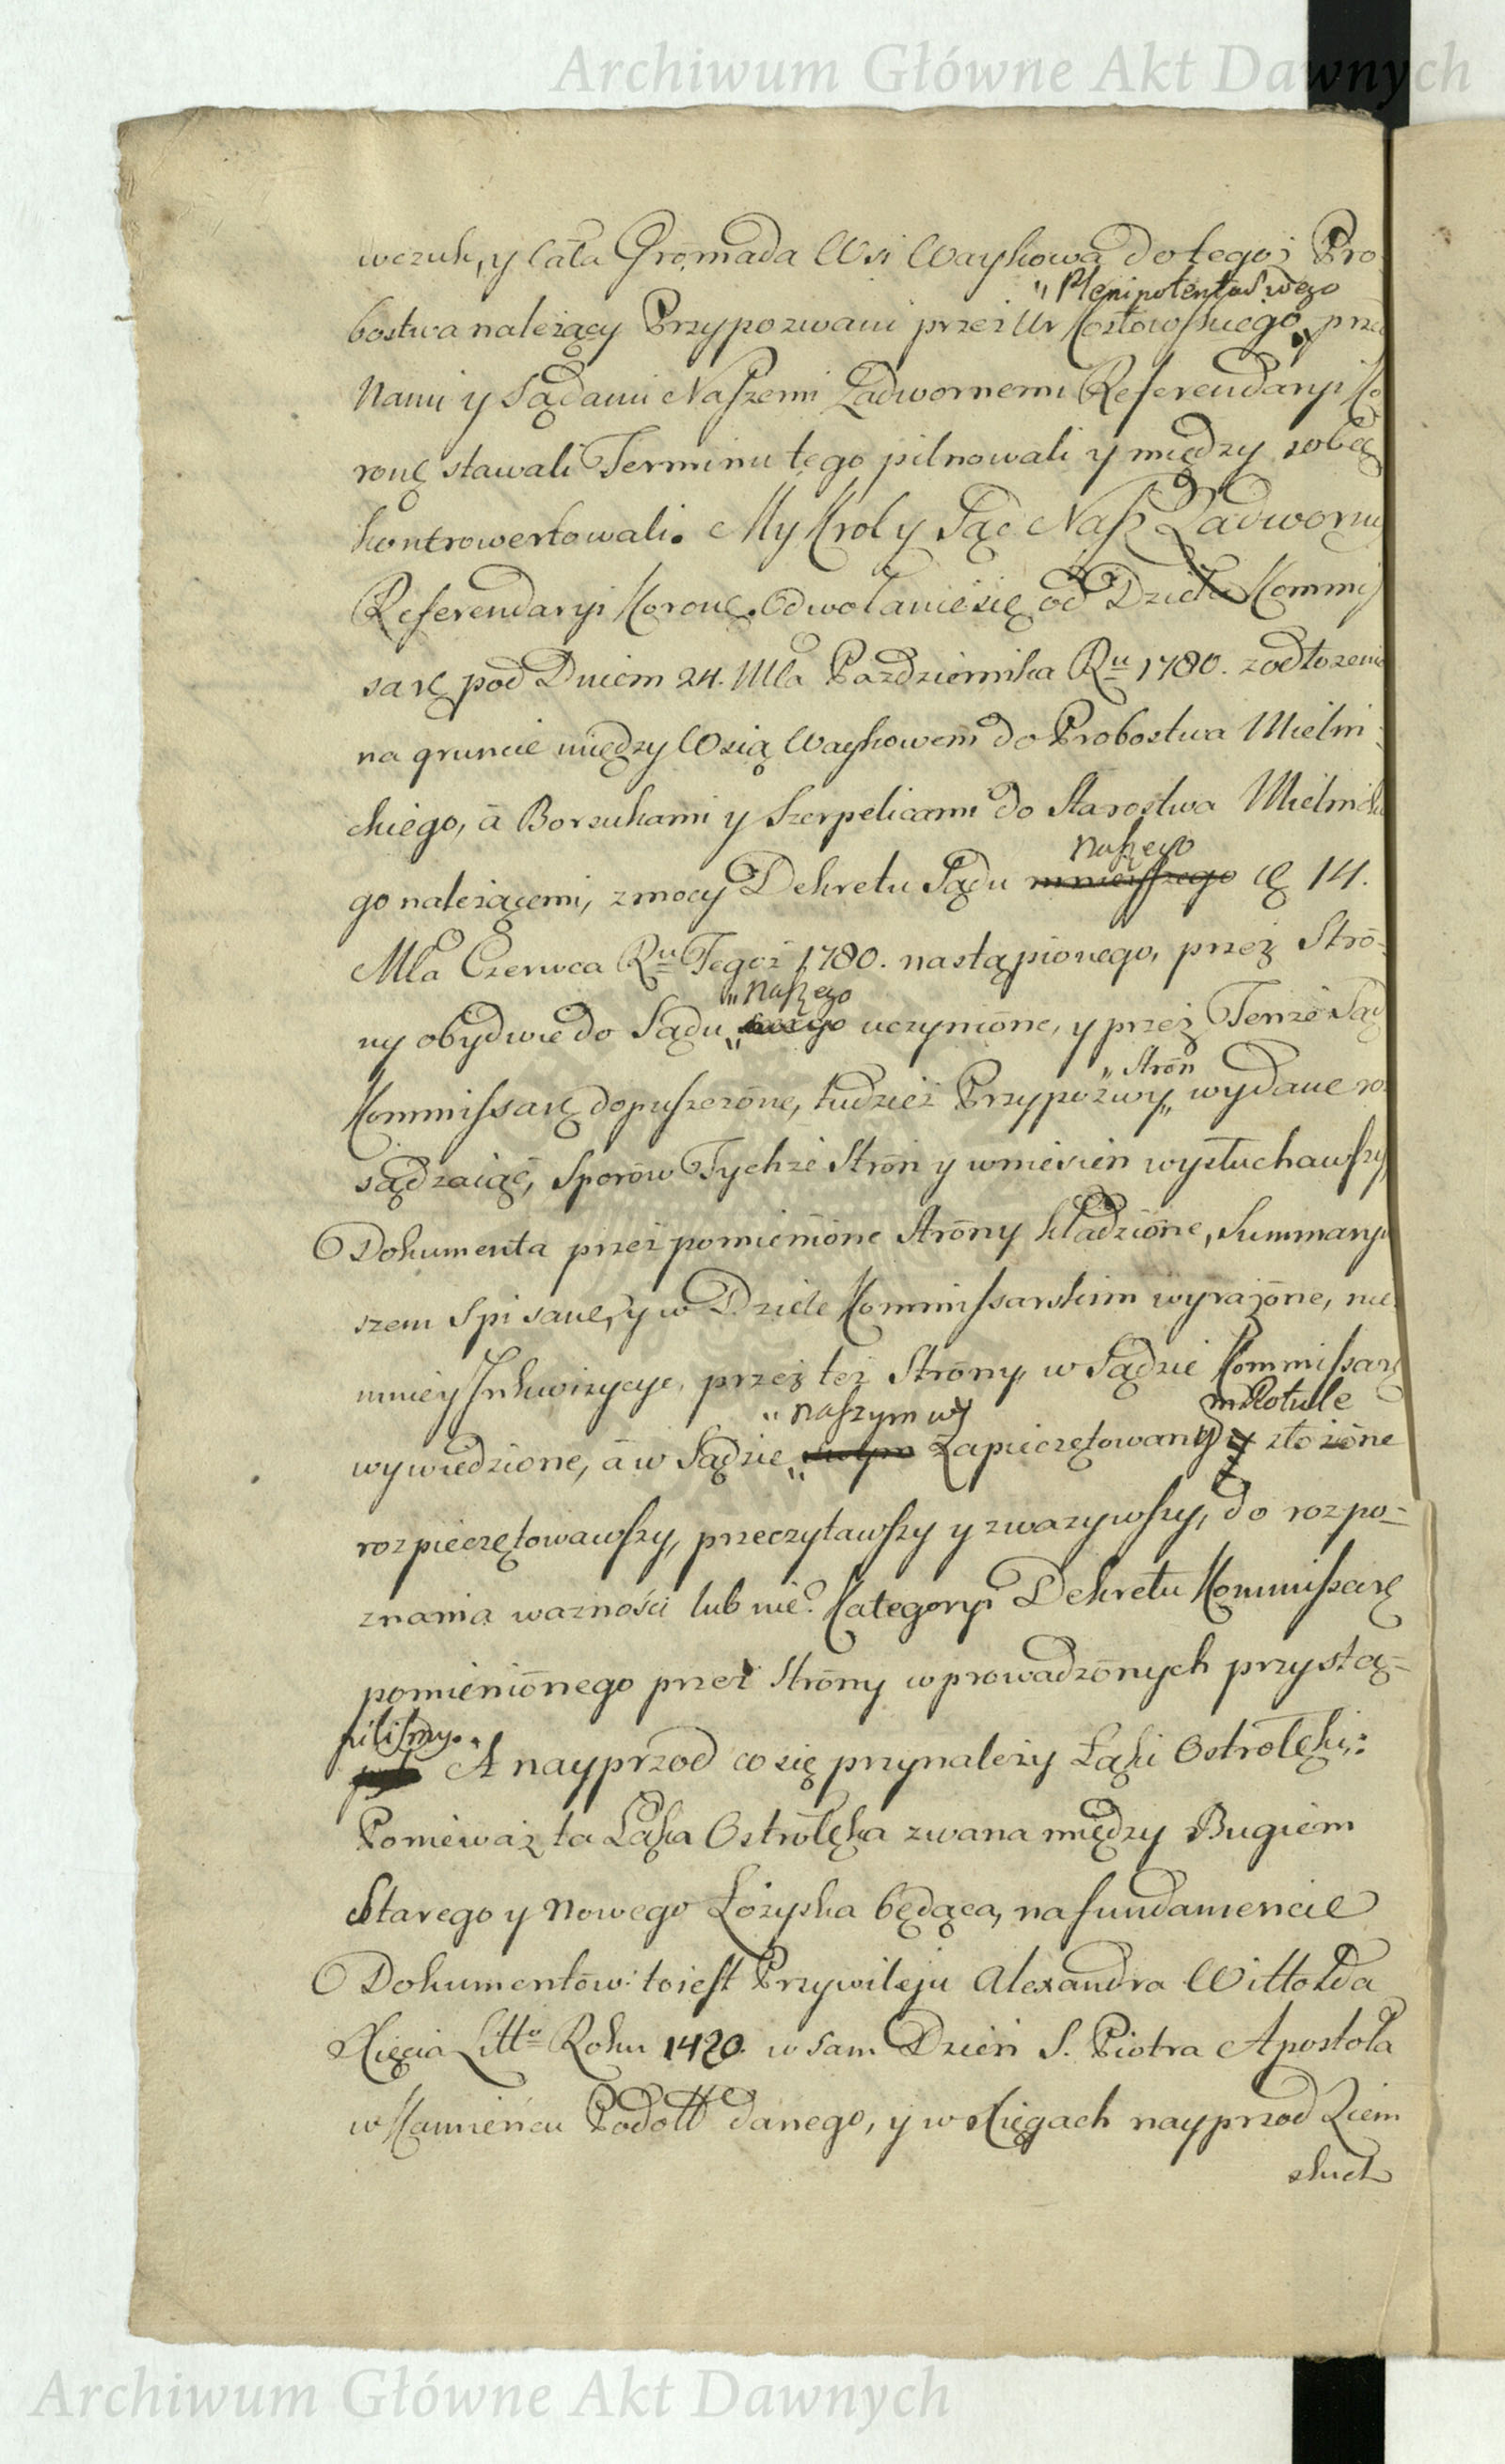 Archiwum Główne Akt Dawnych
wczuk, y Cała Gromada Wsi Waykowa do tegoż Pro
„ Plenipotenta Swego
bostwa należący Przypozwani przez Ur Kozłowskiego „ prze
Nami y Sądami Naszemi Zadwornemi Referendaryi Ko
ronę stawali Terminu tego pilnowali y między sobą
kontrowertowali. My Krol y Sąd Nasz Zadworny
Referendaryi Koronę. Odwołanie się od Dzieła Kommis
sarę pod Dniem 24. Mła Pazdziernika Ru 1780. z odłozenia
na gruncie między Wsią Waykowem do Probostwa Mielni
ckiego, á Borsukami y Szerpelicami do Starostwa Mielnicke
Naszego
go należącemi, z mocy Dekretu Sądu mnieyszego Ꞓ 14.
Mła Czerwca Ru Tegoż 1780. nastąpionego, przez Stro-
„ Naszego
ny obydwie do Sądu „ swego uczynióne, y przez Tenże Sąd
„ Strón
Kommissarę dopuszczóne, tudzież Przypozwy „ wydane ro
sądzaiąc, Sporów Tychże Strón y wniesień wysłuchawszy
Dokumenta przez pomienióne Stróny kładzióne, Summary
szem Spisane, y w Dziele Kommissarskim wyrażóne, nie
mniey Inkwizycye, przez też Stróny, w Sądzie Kommissarę
„ naszym w m Rotule
wywiedzióne, á w Sądzie „ swoym Zapieczętowany y złożóne
rozpieczętowawszy, przeczytawszy y zwazywszy, do rozpo-
znania wazności lub nie? Kategoryi Dekretu Kommissarę
pomieniónego przez Stróny wprowadzónych przystą-
piliśmy.
A nayprzod co się przynależy Łąki Ostrołęki:
Ponieważ ta Łąka Ostrołęka zwana między Bugiem
Starego y Nowego Łożyska będąca, na fundamencie
Dokumentów: to iest Przywileju Alexandra Wittołda
Xięcia Litto Roku 1420. w sam Dzień S. Piotra Apostoła
w Kamieńcu Podoll danego, y w Xięgach nayprzod Ziem
skich
Archiwum Główne Akt Dawnych